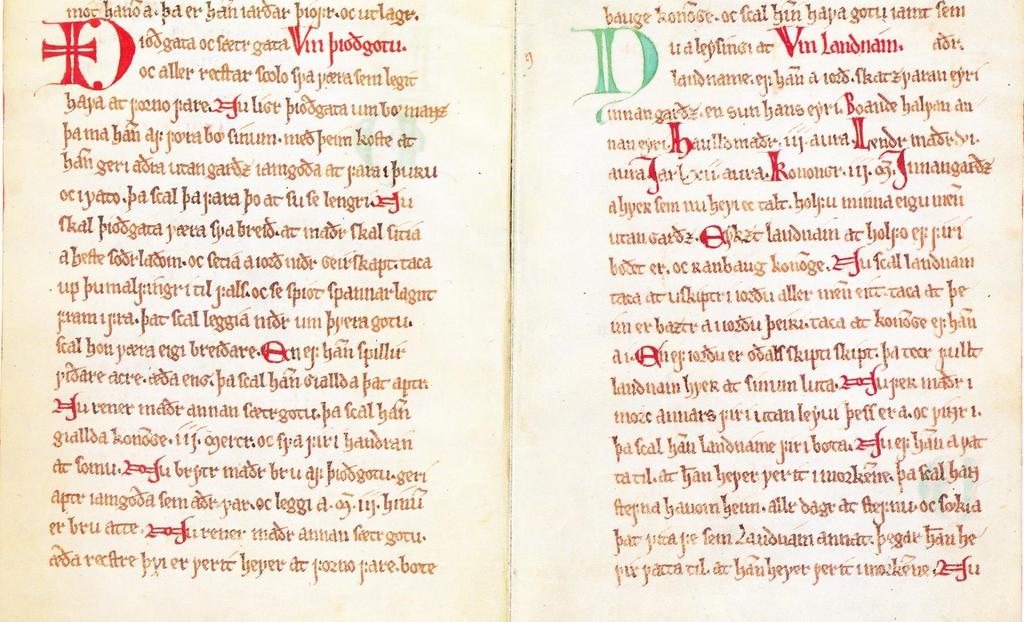 mot hanom a. þa er hañ iarðar þiofꝛ. oc utlagr.
Þioðgata oc sætr gata Vm þioðgotu.
oc aller rectar scolo sva væra sem legit
hava at forno fare. Nu ligr þioðgata um bø mannz
þa ma hañ af fora bø sinum. með þeim koste at
hañ geri aðra utangarðz iamgoða at fara i þurru
oc i vato. þa scal þa fara þo at su se lengri. Nu
skal þioðgata væra sva bræið. at maðr skal sitia
a heste soðrlaðom. oc setia a iorð niðr geirskapt. taca
up þumalfingri til fals. oc se spiot spannar lagnt
fram ifra. þat scal leggia niðr um þvera gotu.
scal hon væra eigi breiðare. En ef hañ spillir
viðare acre. æða eng. þa scal hañ giallda þat aptr.
Nu rener maðr annan sætr gotu. þa scal hañ
giallda konōge .iii. mercr. oc sva firi handran
at somu. Nu brytr maðr bru af þioðgotu. geri
aptr iamgoða sem aðr var. oc leggi a. m̃. iii. hinū
er bru atte. Nu rener maðr annan sætr gotu.
æða rectare þvi er verit hever at forno fare. bøte
bauge konōge. oc scal hiñ hava gotu iamt sem
Nu a leysingi at Vm landnam. aðr.
landname. ef hañ a iorð. skatz varan eyri
innan garðz. en sun hans eyri. Boande halvan an
nan eyri. Haullz maðr .iii. aura. Lendr maðr .vi.
aura. Jarl .xii. aura. Konongr .iii. m̃. Innangarðz
a hver sem nu hevi ec talt. holvu minna eigu meñ
utan garðz. Eykzt landnam at holvo ef firi
boðet er. oc ranbaug konōge. Nu scal landnam
taca at uskiptri iorðu aller meñ eitt. taca at þe
im er baztr a iorðu þeiri. taca at konōge ef hañ
a i. En ef iorðu er oðals skipti skipt. þa tecr fullt
landnam hver at sinum luta. Nu fer maðr i
morc annars firi utan leyvi þess er a. oc hygr i.
þa scal hañ landname firi bøta. Nu ef hañ a vat
ta til. at hañ hever verit i morkēne. þa scal hañ
stefna hanom heim. allr dagr at stefnu. oc sökia
þat vita fe sem landnam annat. þegar hañ he
fir vatta til. at hañ hever verit i morkēne. Nu